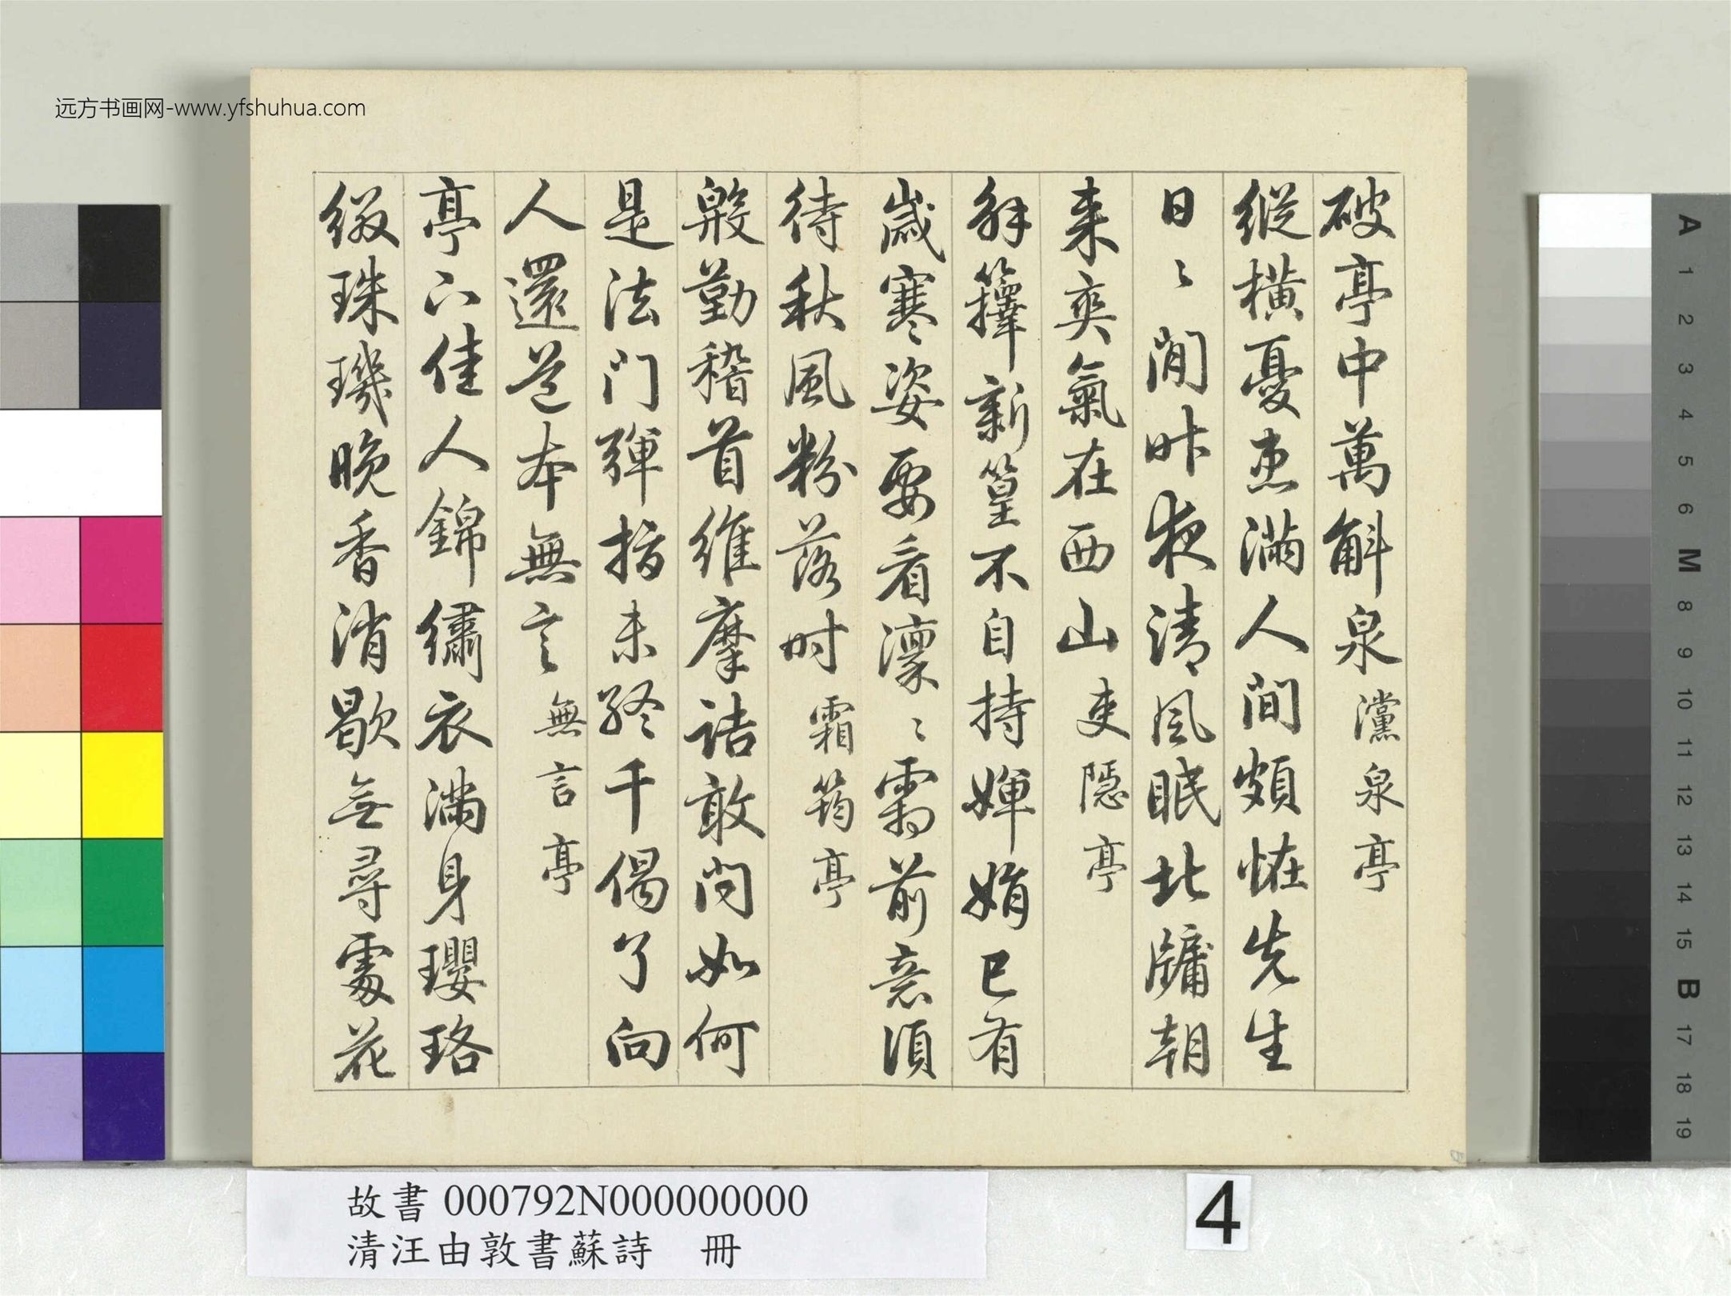 远方书画网-www.yfshuhua.com
破亭中萬斛泉 灙泉亭
縱橫憂患滿人間頗怪先生
日〻閒昨夜清風眠北牖朝
来爽氣在西山 吏隱亭
解籜新篁不自持嬋娟已有
歲寒姿要看凛〻霜前意須
待秋風粉落时 霜筠亭
殷勤稽首維摩詰敢问如何
是法门彈指未終千偈了向
人還道本無言 無言亭
亭下佳人錦繡衣滿身瓔珞
綴珠璣晚香消歇無尋處花
故書 000792N000000000
清汪由敦書蘇詩 冊
4
A 1 2 3 4 5 6 M 8 9 10 11 12 13 14 15 B 17 18 19